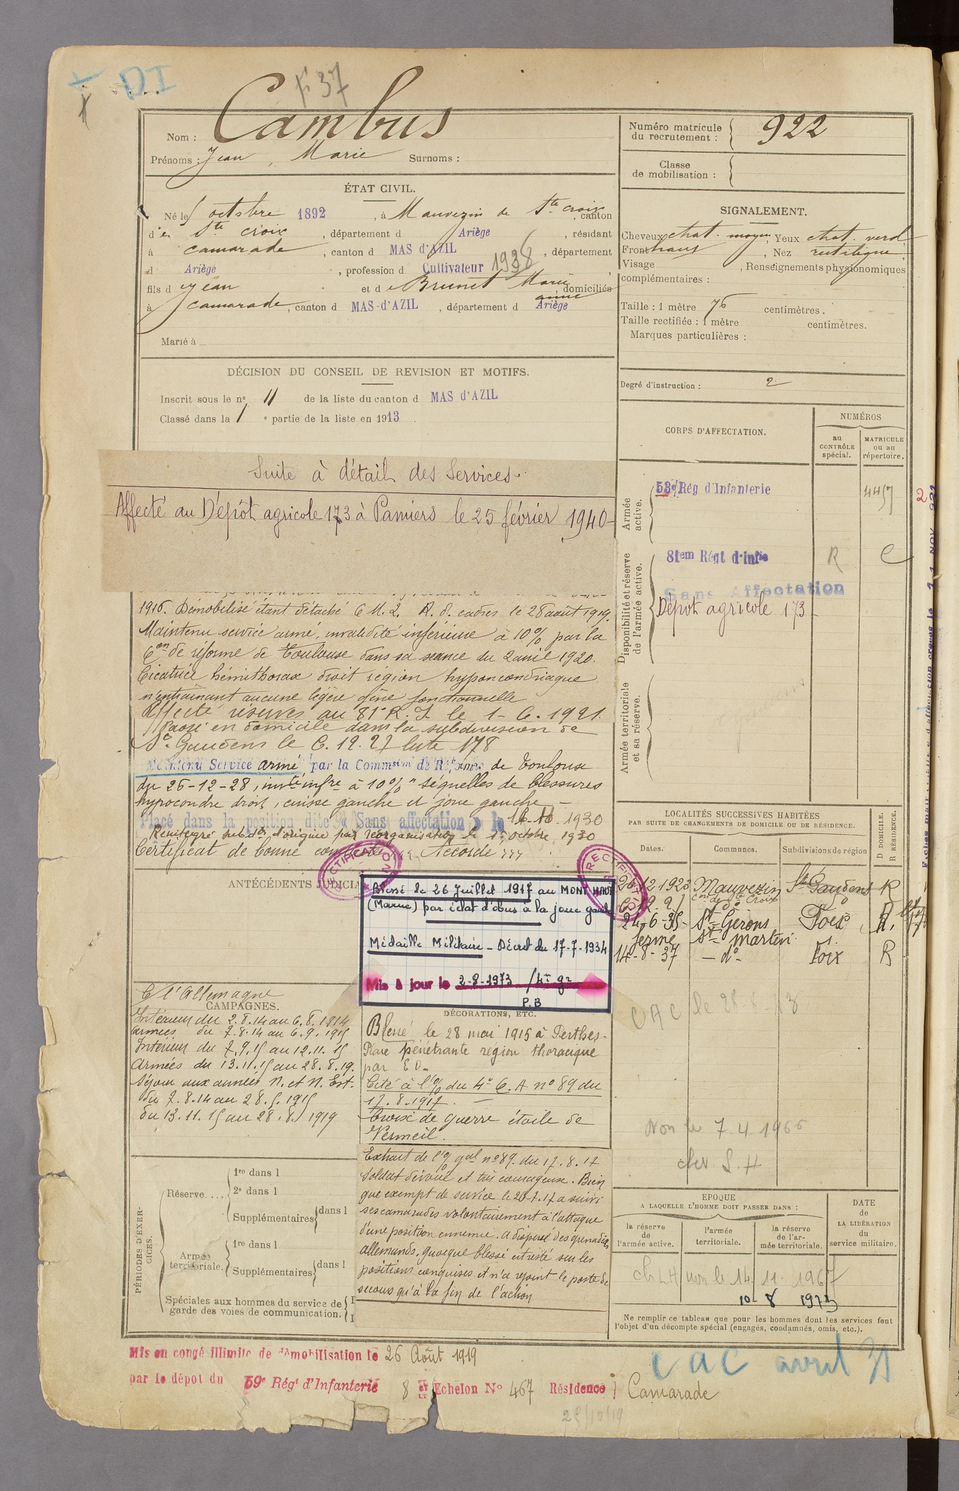 DI
F 37
Nom : Cambus
Prénoms : Jean, Marie Surnoms :
Numéro matricule du recrutement : 922
Classe de mobilisation :
ÉTAT CIVIL.
Né le octobre 1892, à Mauvezin de Ste croix, canton
d e Ste croix, département d Ariège, résidant
à camarade, canton d MAS d'AZIL, département
d Ariège, profession d Cultivateur 1938
fils d e Jean et d e Brunet Marie anne domiciliés
à camarade, canton d MAS d'AZIL, département d Ariège
Marié à
SIGNALEMENT.
Cheveux chat. moyen, Yeux chat. verd
Front haut, Nez rectiligne
Visage , Renseignements physionomiques
complémentaires :
Taille : 1 mètre 76 centimètres.
Taille rectifiée : 1 mètre centimètres.
Marques particulières :
Degré d'instruction : 2
DÉCISION DU CONSEIL DE REVISION ET MOTIFS.
Inscrit sous le n° 11 de la liste du canton d MAS d'AZIL
Classé dans la 1 e partie de la liste en 1913
Suite à détail des Services.
Affecté au Dépôt agricole 173 à Pamiers le 25 février 1940
1916. Démobilisé étant détaché E.M.L. A. d. cadres le 28 août 1919.
Maintenu service armé, invalidité inférieure à 10% par la
Con de réforme de Toulouse dans sa séance du 2 avril 1920.
Cicatrice hémithorax droit région hypocondriaque
n'entraînant aucune légère gêne fonctionnelle
Affecté réserves au 81e R.I. le 1-6.1921
Passé en domicile dans la subdivision de
St Gaudens le 6.12.27 liste 178
Maintenu Service armé par la Commsion de Réforme de Toulouse
du 26-12-28, invté infre à 10% séquelles de blessures
hypocondre droit, cuisse gauche et joue gauche –
Placé dans la position dite "Sans affectation" le 1930
Réintégré subdon d'origine par réorganisation le 1er octobre 1930
Certificat de bonne conduite Accordé
CORPS D'AFFECTATION.
NUMÉROS
AU CONTRÔLE spécial.
MATRICULE OU AU répertoire.
Armée active.
59e Rég d'Infanterie
4457
Disponibilité et réserve de l'armée active.
81em Régt d'Infie
R
Sans Affectation
Dépot agricole 173
Armée territoriale et sa réserve.
LOCALITÉS SUCCESSIVES HABITÉES
PAR SUITE DE CHANGEMENTS DE DOMICILE OU DE RÉSIDENCE.
Dates. Communes. Subdivisions de région
D DOMICILE. R RÉSIDENCE.
12 1923 Mauvezin St Gaudens R
24-6-35 St Girons Foix R.
ferme St Martin
14-8-37 – do – Foix R
ANTÉCÉDENTS JUDICI
RECTIFICATION
RECTIF
Blessé le 26 Juillet 1917 au MONT HAUT
(Marne) par éclat d'obus à la joue gauche
Médaille Militaire – Décret du 17-7-1934
Mis à jour le 2-8-1973
P.B
C. l'Allemagne
CAMPAGNES.
Intérieur du 2.8.14 au 6.8.1914
Armées du 7.8.14 au 6.9.1915
Intérieur du 7.9.15 au 12.11.15
Armées du 13.11.15 au 28.8.19.
Séjour aux armées N. et N. Est.
du 7.8.14 au 28.5.1915
du 13.11.15 au 28.8.1919
DÉCORATIONS, ETC.
Blessé le 28 mai 1915 à Perthes-
Plaie pénétrante région thoracique
par E.O.
Cité à l'O/ du 4e C.A n° 89 du
17.8.1917.
Croix de guerre étoile de
Vermeil.
Extrait de l'O/ gal n° 89. du 17.8.17
Soldat dévoué et très courageux. Bien
que exempt de service le 26-7-17 a suivi
ses camarades volontairement à l'attaque
d'une position ennemie. A dispersé des grenadiers
allemands, quoique blessé est resté sur les
positions conquises et n'a rejoint le poste de
secours qu'à la fin de l'action
CAC le 28-
Non le 7.4.1966
cher L.H
PÉRIODES D'EXERCICES.
Réserve....
1re dans l
2e dans l
Supplémentaires dans l
Armée territoriale.
1re dans l
Supplémentaires dans l
Spéciales aux hommes du service de garde des voies de communication.
EPOQUE
A LAQUELLE L'HOMME DOIT PASSER DANS :
la réserve de l'armée active.
l'armée territoriale.
la réserve de l'armée territoriale.
DATE DE LA LIBÉRATION du service militaire.
ch LH non le 14 11 1967
10 8 1973
Ne remplir ce tableau que pour les hommes dont les services font
l'objet d'un décompte spécial (engagés, condamnés, omis, etc.).
CAC avril
Mis en congé illimité de démobilisation le 26 Août 1919
par le dépot du 59e Régt d'Infanterie 8 Echelon N° 467 Résidence : Camarade